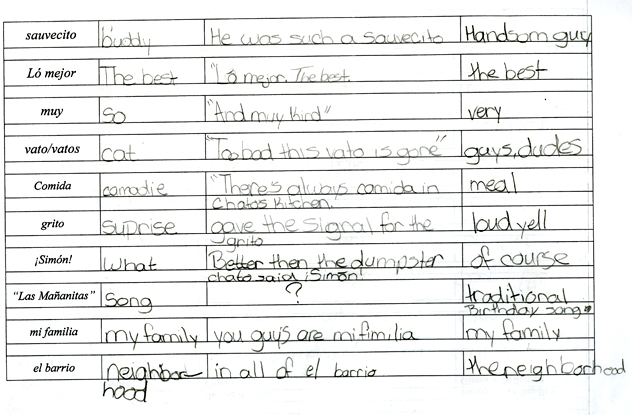 sauvecito buddy He was such a sauvecito Handsom guy
Ló mejor The best "Ló mejor. The best. the best
muy So "And muy kind" very
vato/vatos cat "Too bad this vato is gone" guys, dudes
Comida comadie "There's always comida in meal
Chatos Kitchen."
grito suprise gave the signal for the loud yell
grito
¡Simón! What Better then the dumpster of course
chato said ¡Simón!
"Las Mañanitas" Song ? traditional
Birthday song.
mi familia my family you guys are mi fimilia my family
el barrio neighbor- in all of el barrio the neighborhood
hood